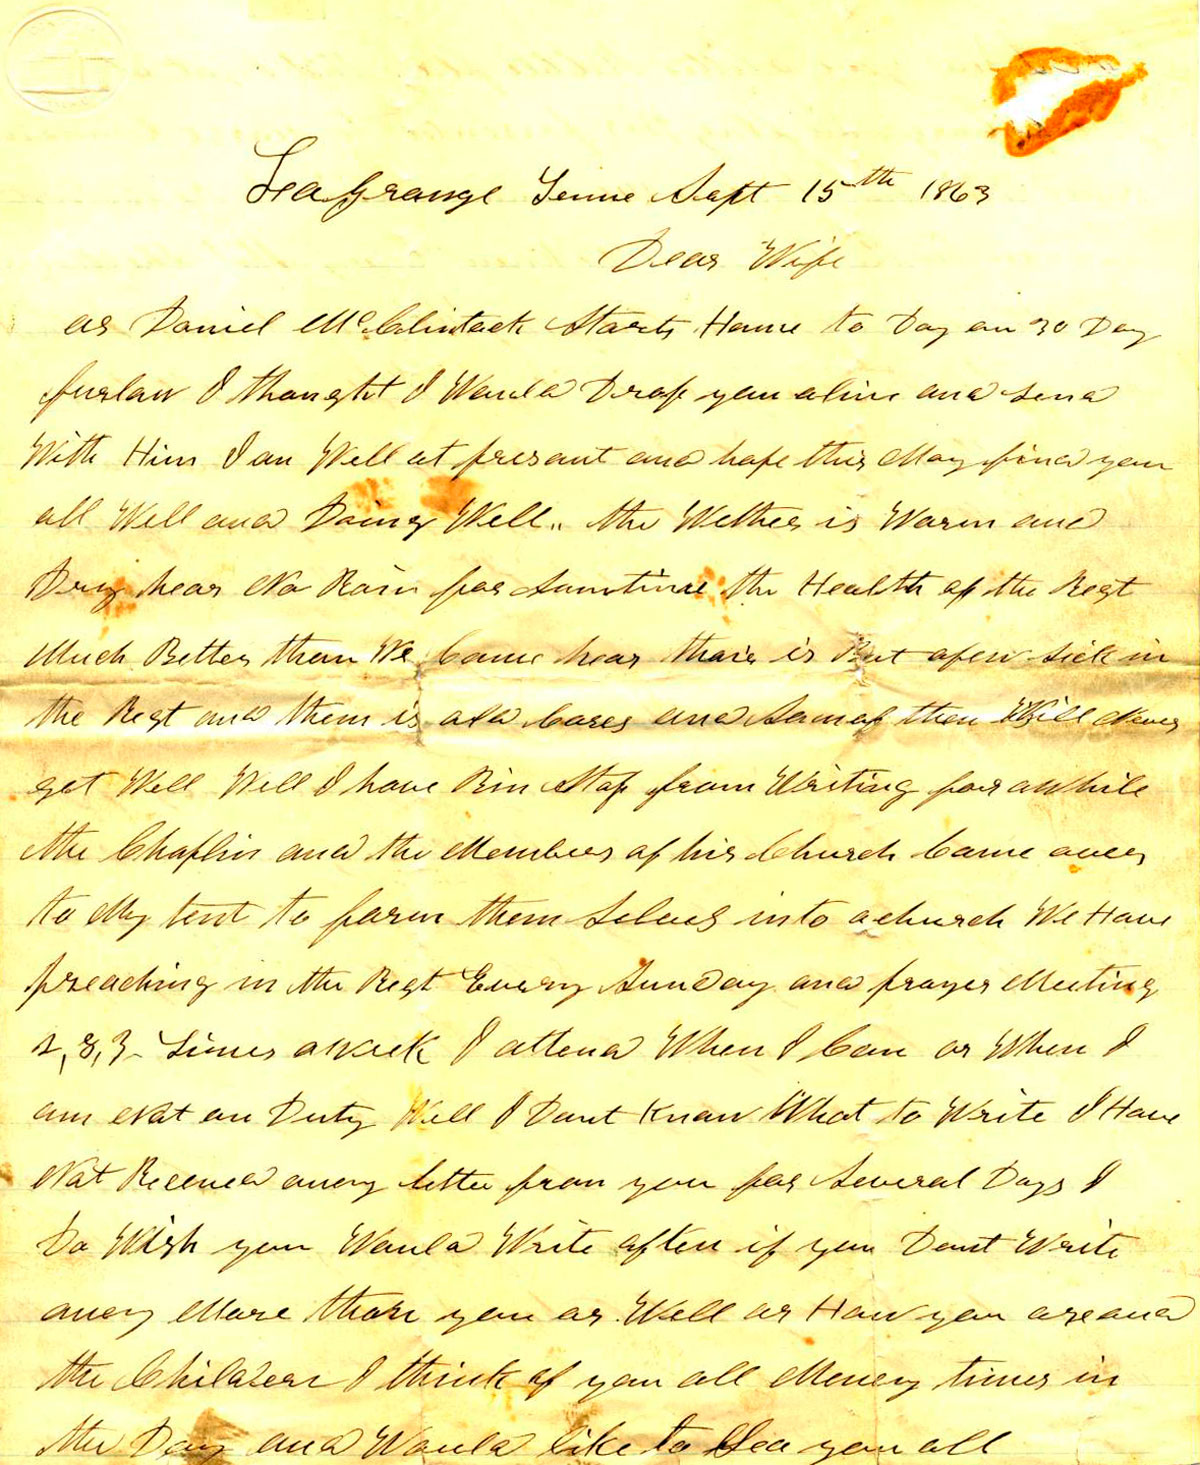 LaGrange Tenne Sept 15th 1863
Dear Wife
as Daniel McClintock Starts Home to Day on 30 Day
furlow I thought I Would Drop you aline and send
With Him I am Well at presant and hope this May find you
all Well and Doing Well.. the Wether is Warm and
Dry hear No Rain for Sumtime the Health of the Regt
Much Better than We Came hear thair is But afew sick in
the Regt and them is old Cases and Som of then Will Never
get Well Well I have Bin Stop from Writing for awhile
the Chaplin and the Members of his Church Came over
to My tent to form them Selves into a church We Have
preaching in the Regt Every Sunday and prayer Meeting
2, 3 times a week I attend When I Can or When I
am Not on Duty Well I Dont Know What to Write I Have
Not Received aney letter from you for Several Days I
Do Wish you Would Write often if you Dont Write
aney More than you ar Well or How you are and
the Children I think of you all Meney times in
the Day and Would like to See you all